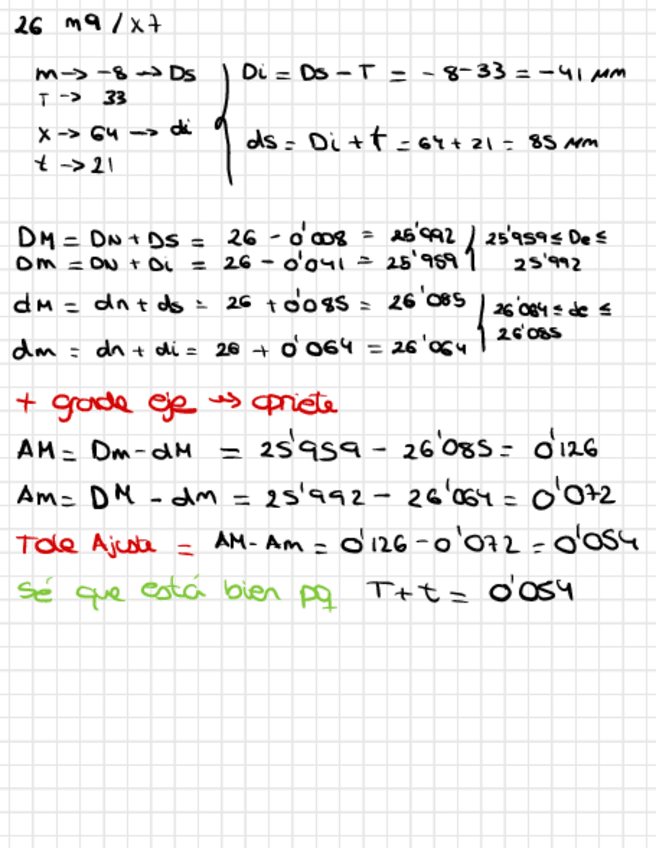 26 m9 / x7
m → -8 → Ds
T → 33
x → 64 → di
t → 21
Di = Ds - T = - 8 - 33 = -41 µm
ds = Di + t = 64 + 21 = 85 µm
DM = DN + Ds = 26 - 0'008 = 25'992
Dm = DN + Di = 26 - 0'041 = 25'959
25'959 ≤ De ≤
25'992
dM = dn + ds = 26 + 0'085 = 26'085
dm = dn + di = 26 + 0'064 = 26'064
26'064 ≤ de ≤
26'085
+ grade eje →> apriete
AM = Dm - dM = 25'959 - 26'085 = 0'126
Am = DM - dm = 25'992 - 26'064 = 0'072
Tole Ajuste = AM - Am = 0'126 - 0'072 = 0'054
Sé que está bien pq T + t = 0'054